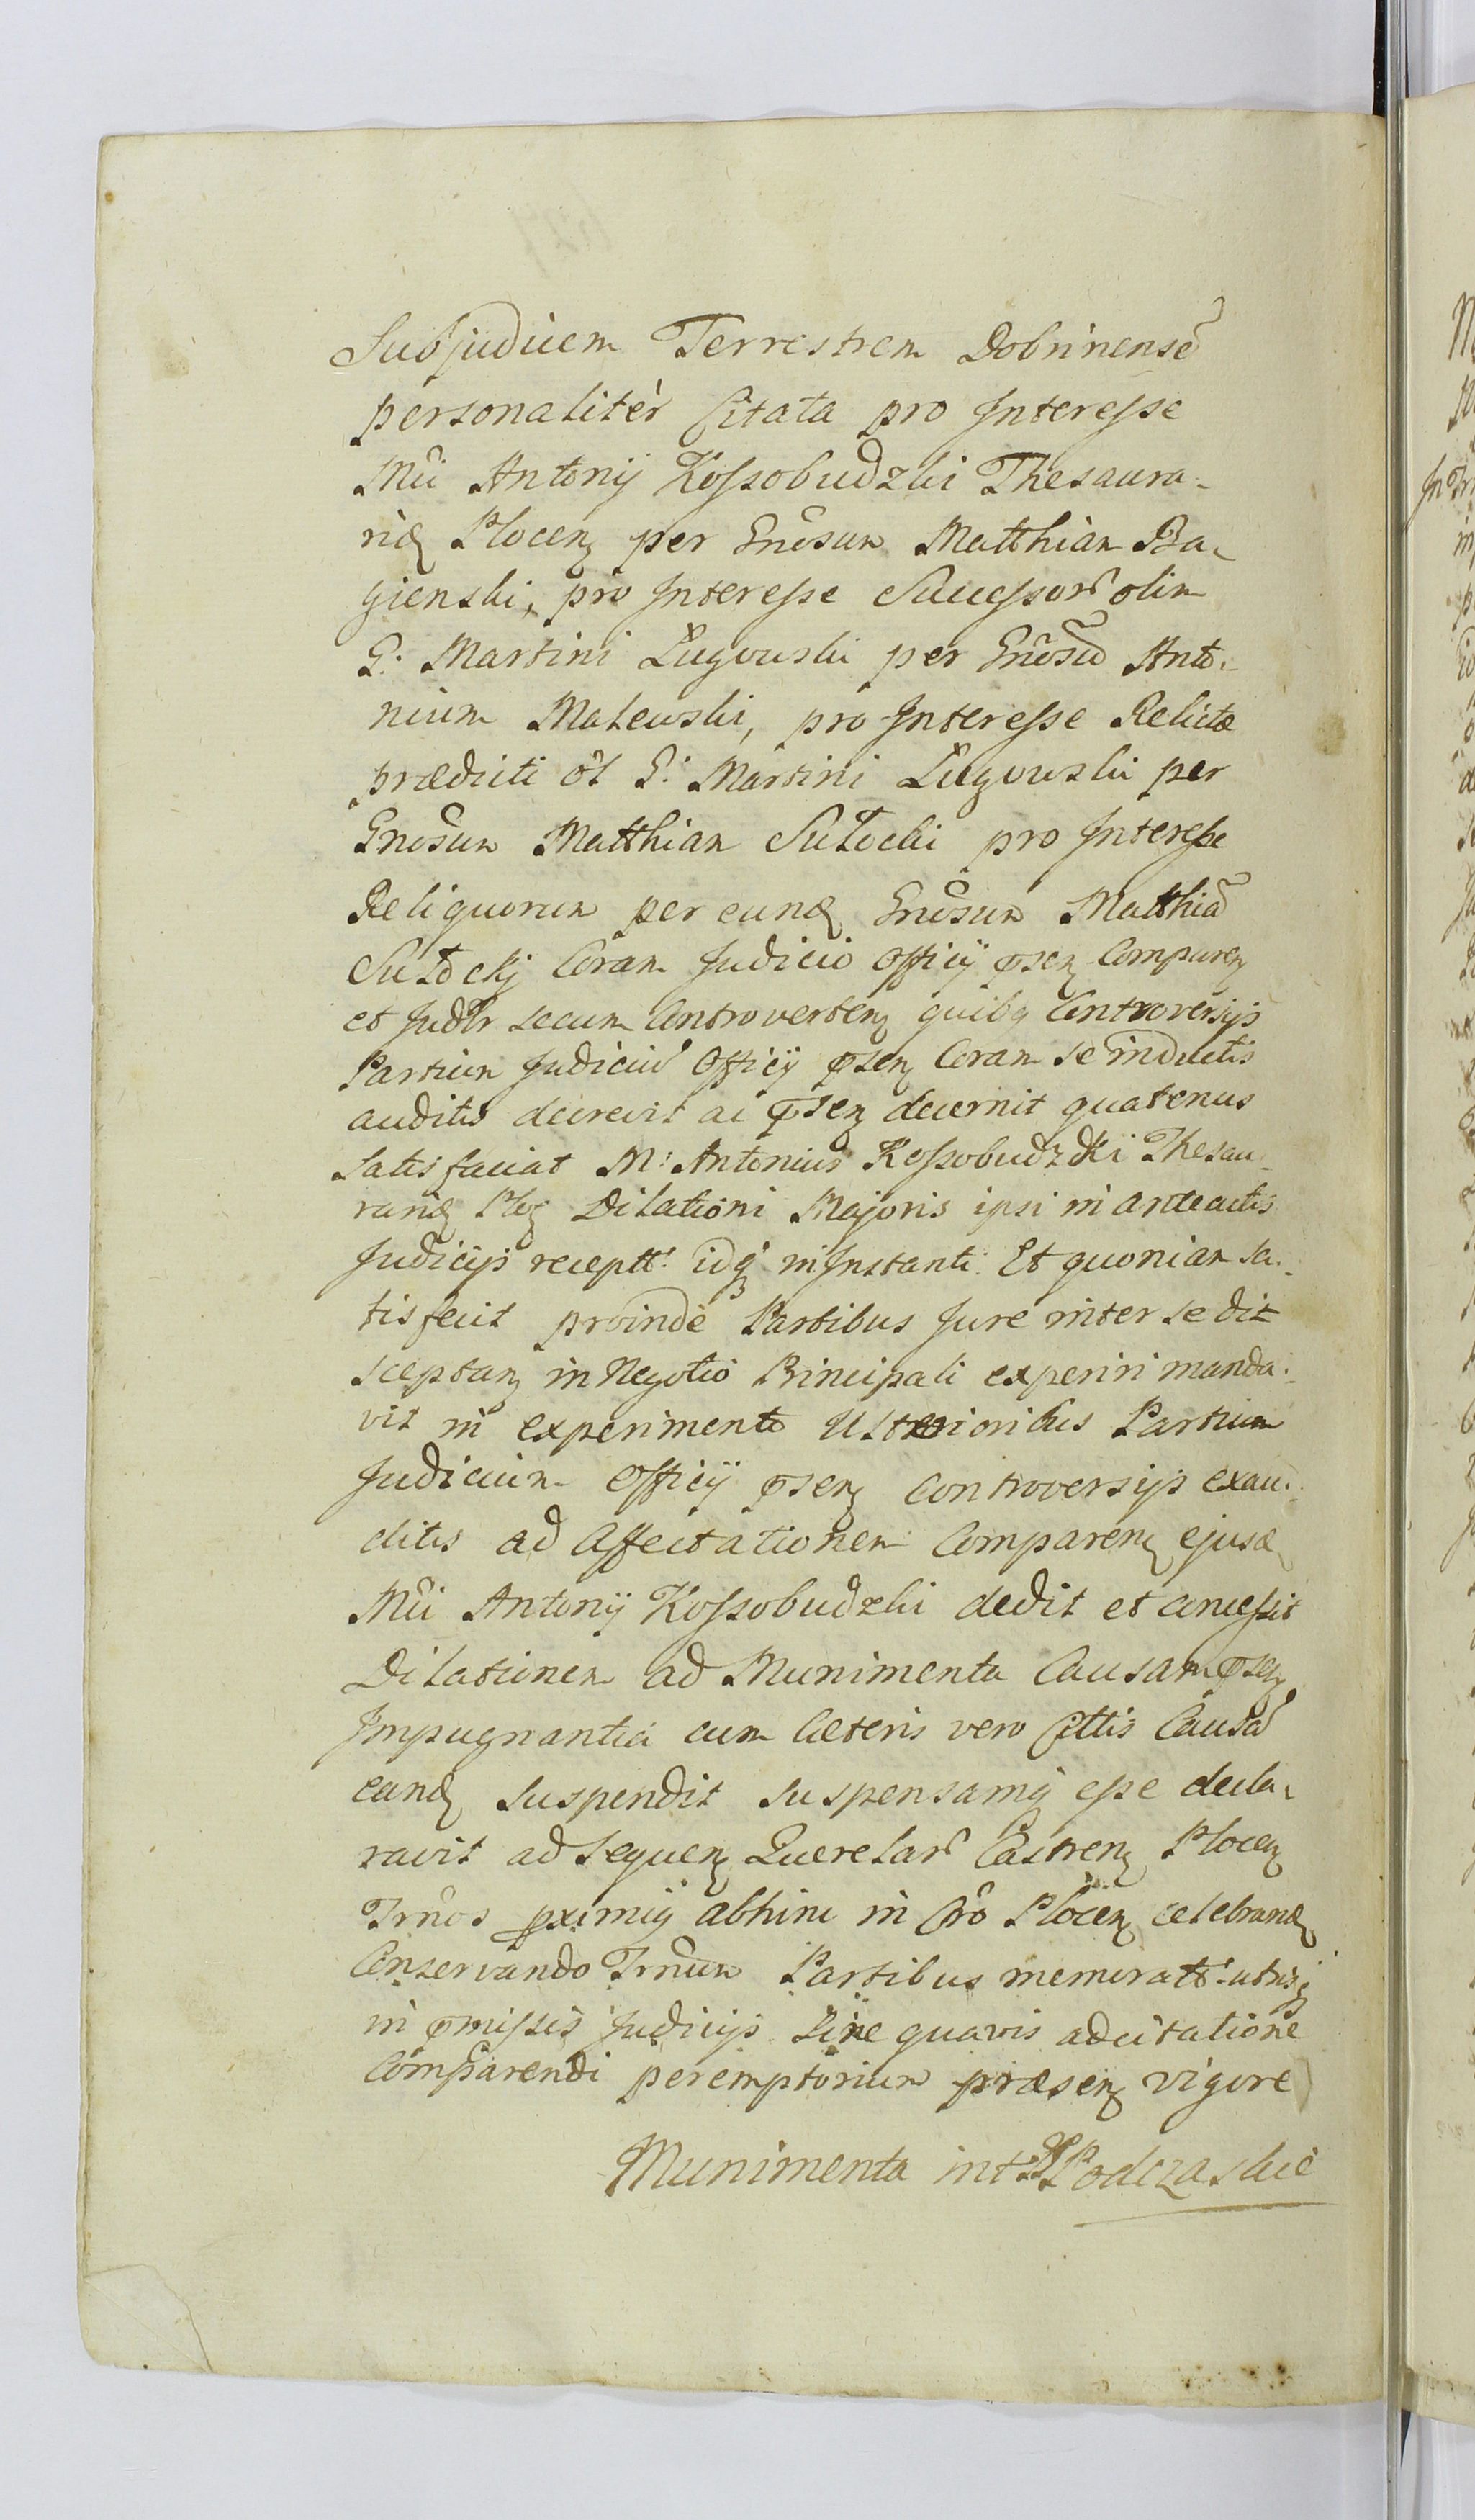 Subjudicem Terrestrem Dobrinensē
personalitèr Citata pro Interesse
Mĉi Antonij Kossobudzki Thesaura-
riӕ Plocen per Gnosum Matthiam Ba-
gienski, pro Interesse Successor olim
G: Martini Ługowski per Gnosū Anto-
nium Makowski, pro Interesse Relictæ
prædicti ol G: Martini Ługowski per
Gnosum Matthiam Sutocki pro Interesse
Reliquorum per eund Gnosum Matthiā
Sutockj Coram Judicio Officij psen Comparen
et Judlr secum Controverten quibq Controversijs
Partium Judiciū Officij psen Coram se inductis
auditis decrevit ac psen decernit quatenus
Satisfaciat M: Antonius Kossobudzki Thesau-
rariӕ Ploc Dilationi Majoris ipsi in anteactis
Judicijs receptt: idq in Instanti. Et quoniam sa-
tisfecit proindè Partibus Jure inter se dit
sceptan in Negotio Principali experiri manda-
vit in experimento Ulterioribus Partium
Judicium Officij psen Controversijs exau-
ditis ad Affectationem Comparen ejusd
Mĉi Antonij Kossobudzki dedit et concessit
Dilationem ad Munimenta Causam psen
Impugnantia cum Cæteris vero Cittis Causā
eand suspendit suspensamq esse decla-
ravit ad sequen Querelar Castren Plocen
Trnos pximiq abhinc in Cro Plocen celebrand
Conservando Trnum Partibus memoratt: utrisq
in pmissis Judicijs Sine quavis adcitatione
Comparendi peremptorium præsen vigore
Munimenta int PPodczaskie